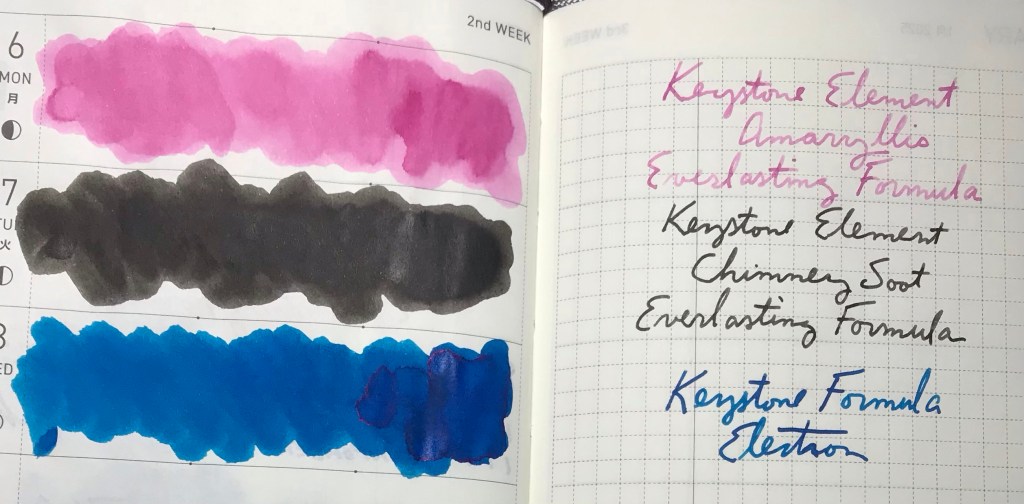 2nd WEEK
6
MON
月
7
火
Keystone Element
Amaryllis
Everlasting Formula
Keystone Element
Chimney Soot
Everlasting Formula
Keystone Formula
Electron